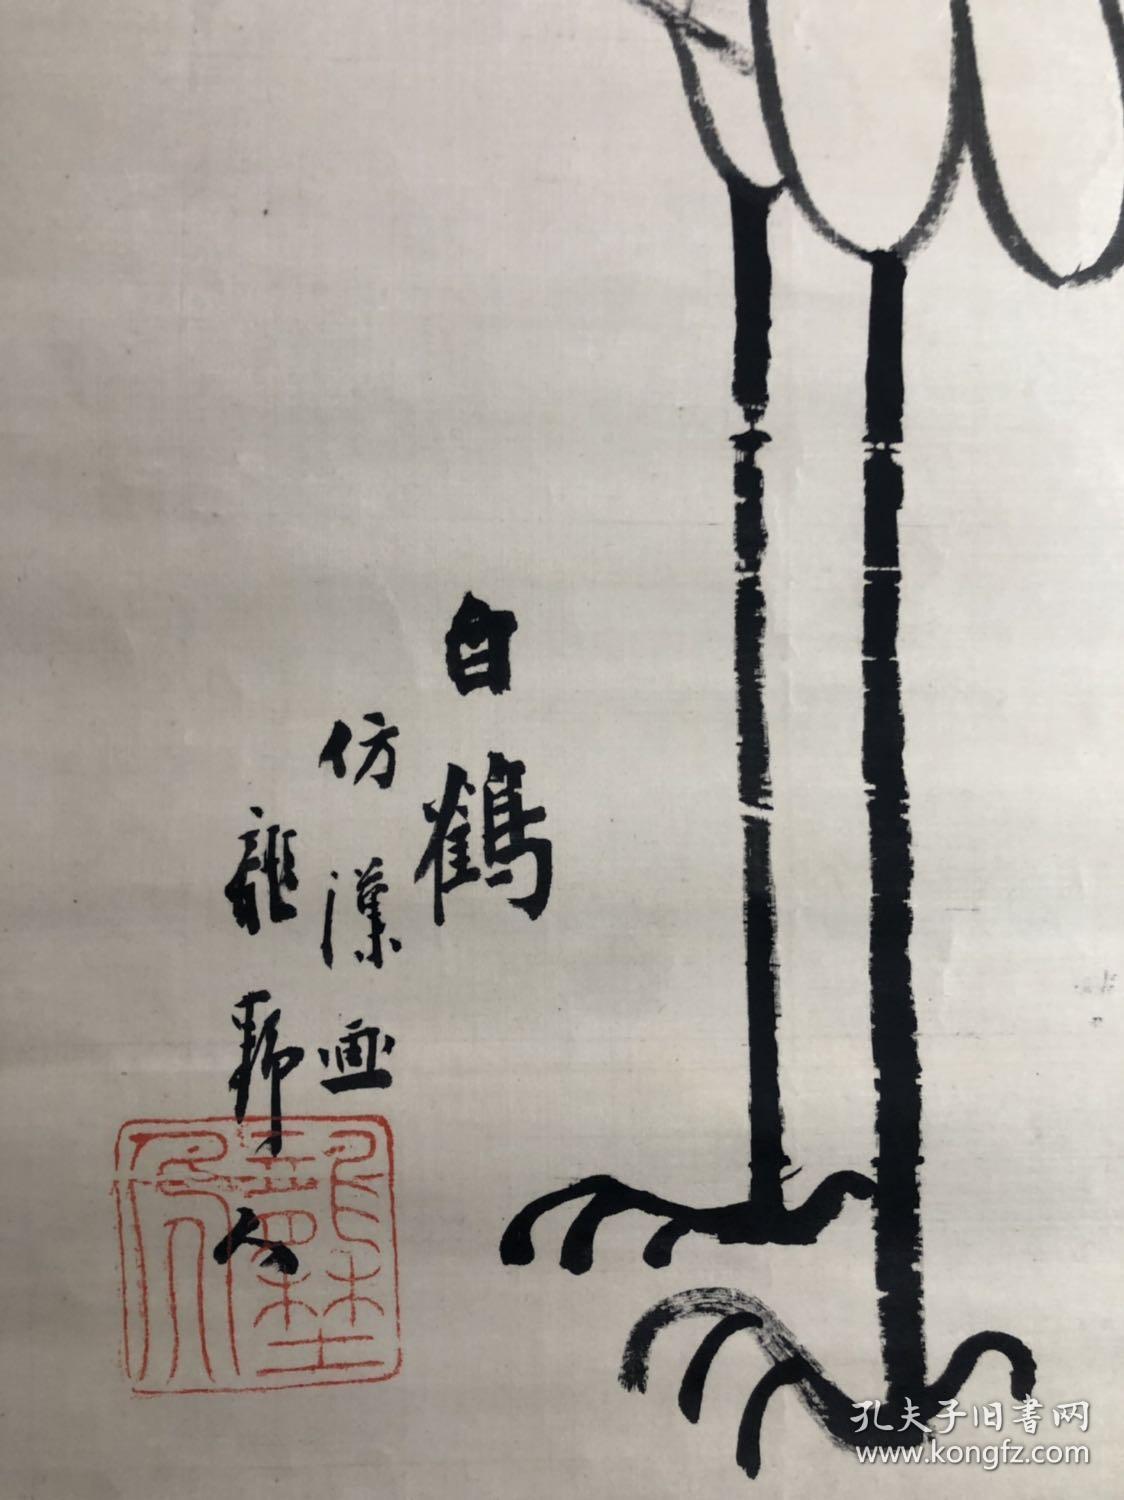 白鶴
仿漢画
龍 人
孔夫子旧書网
www.kongfz.com